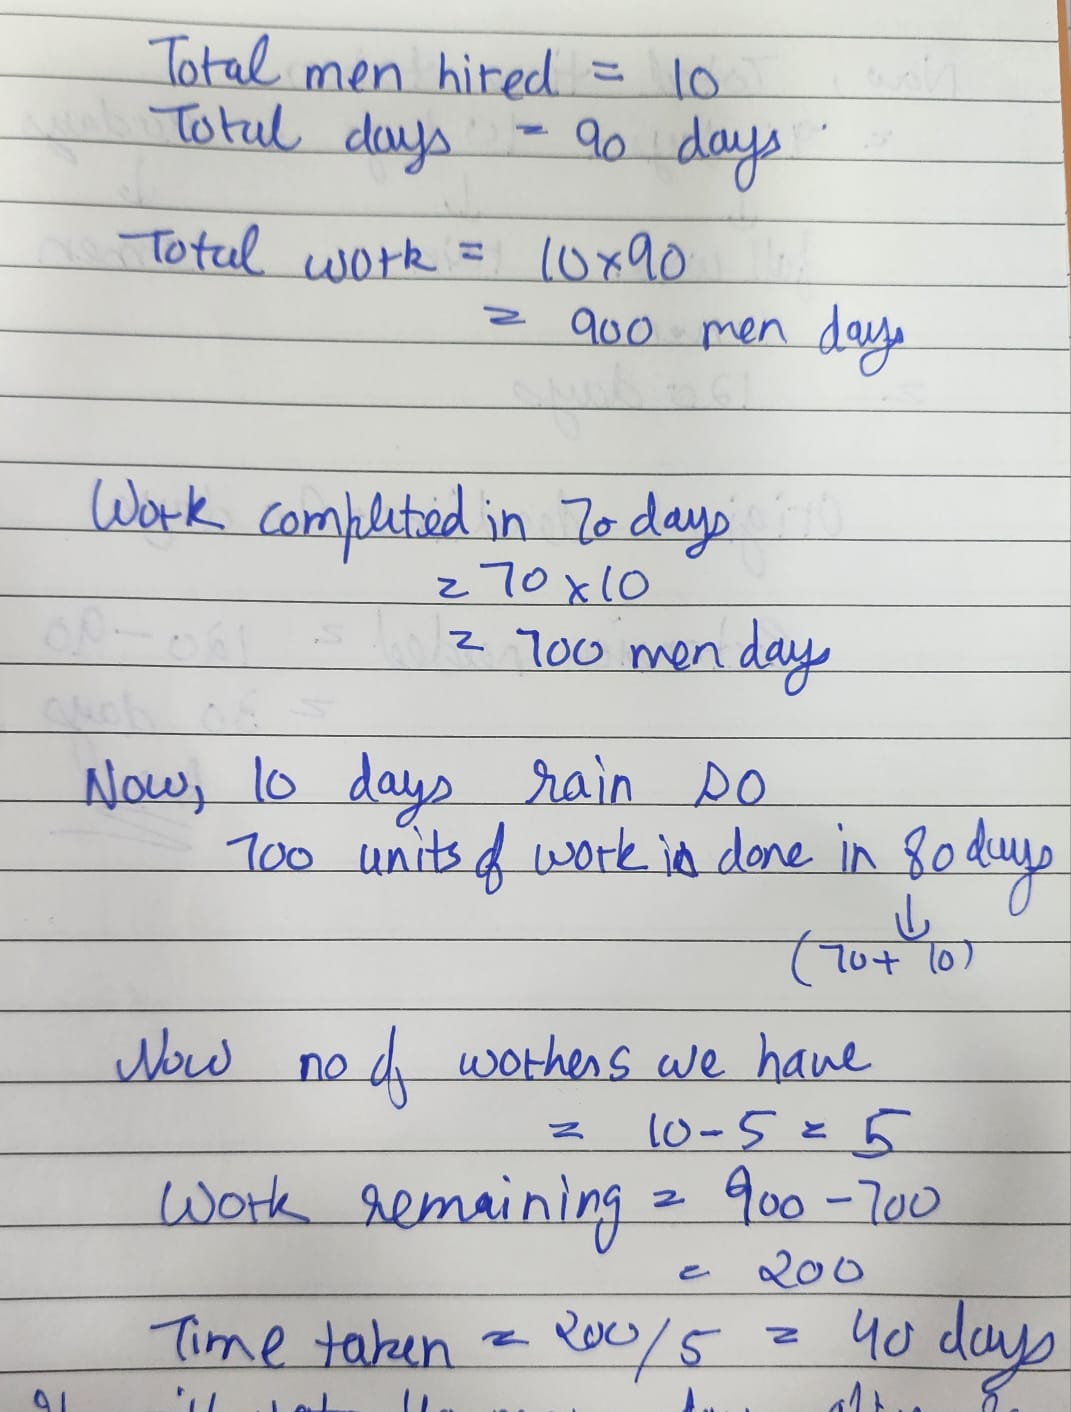 Total men hired = 10
Total days = 90 days
Total work = 10x90
= 900 men days
Work completed in 70 days
= 70 x 10
= 700 men days
Now, 10 days rain so
700 units of work is done in 80 days
↓
(70+10)
Now no of workers we have
= 10-5 = 5
Work remaining = 900-700
= 200
Time taken = 200/5 = 40 days